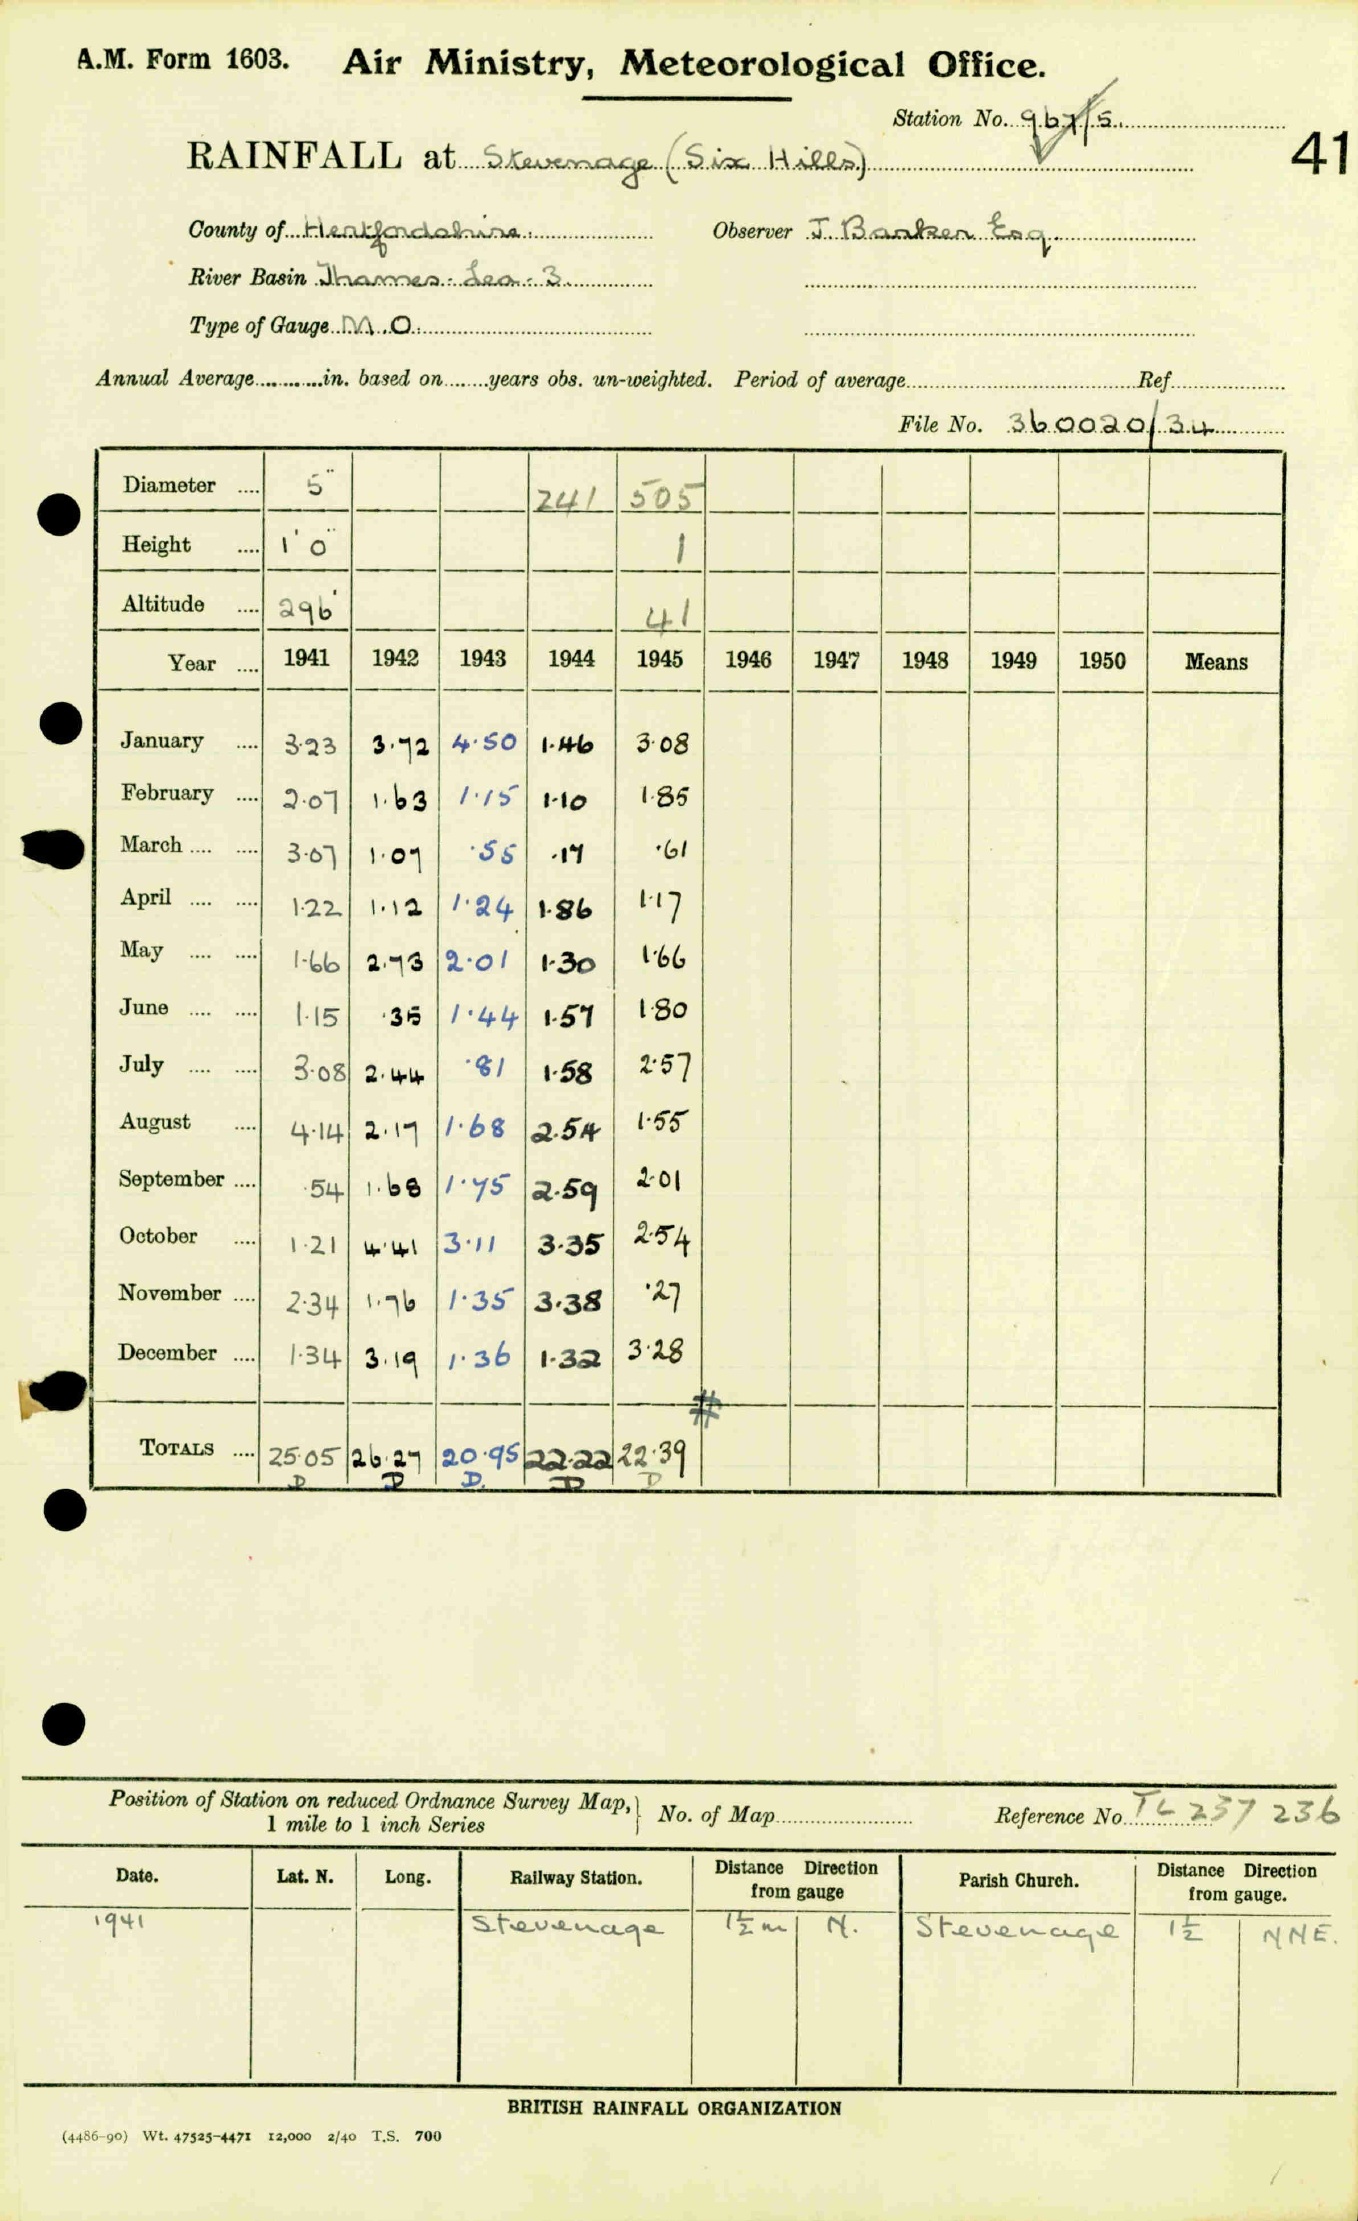 A.M. Form 1603. Air Ministry, Meteorological Office.
Station No. 967/5.
41
RAINFALL at Stevenage (Six Hills)
County of Hertfordshire. Observer J Barker Esq.
River Basin Thames-Lea-3.
Type of Gauge M.O.
Annual Average............in. based on........years obs. un-weighted. Period of average........Ref........
File No. 360020/34
Diameter .... 5" 241 505
Height .... 1' 0" 1
Altitude .... 296' 41
Year .... 1941 1942 1943 1944 1945 1946 1947 1948 1949 1950 Means
January .... 3.23 3.72 4.50 1.46 3.08
February .... 2.07 1.63 1.15 1.10 1.85
March .... .... 3.07 1.07 .55 .17 .61
April .... .... 1.22 1.12 1.24 1.86 1.17
May .... .... 1.66 2.73 2.01 1.30 1.66
June .... .... 1.15 .35 1.44 1.57 1.80
July .... .... 3.08 2.44 .81 1.58 2.57
August .... 4.14 2.17 1.68 2.54 1.55
September .... .54 1.68 1.75 2.59 2.01
October .... 1.21 4.41 3.11 3.35 2.54
November .... 2.34 1.76 1.35 3.38 .27
December .... 1.34 3.19 1.36 1.32 3.28
#
TOTALS .... 25.05 26.27 20.95 22.22 22.39
D D D. D D
Position of Station on reduced Ordnance Survey Map, 1 mile to 1 inch Series } No. of Map........ Reference No. TL 237 236
Date. Lat. N. Long. Railway Station. Distance Direction from gauge Parish Church. Distance Direction from gauge.
1941 Stevenage 1½ m N. Stevenage 1½ NNE.
BRITISH RAINFALL ORGANIZATION
(4486-90) Wt. 47525-4471 12,000 2/40 T.S. 700